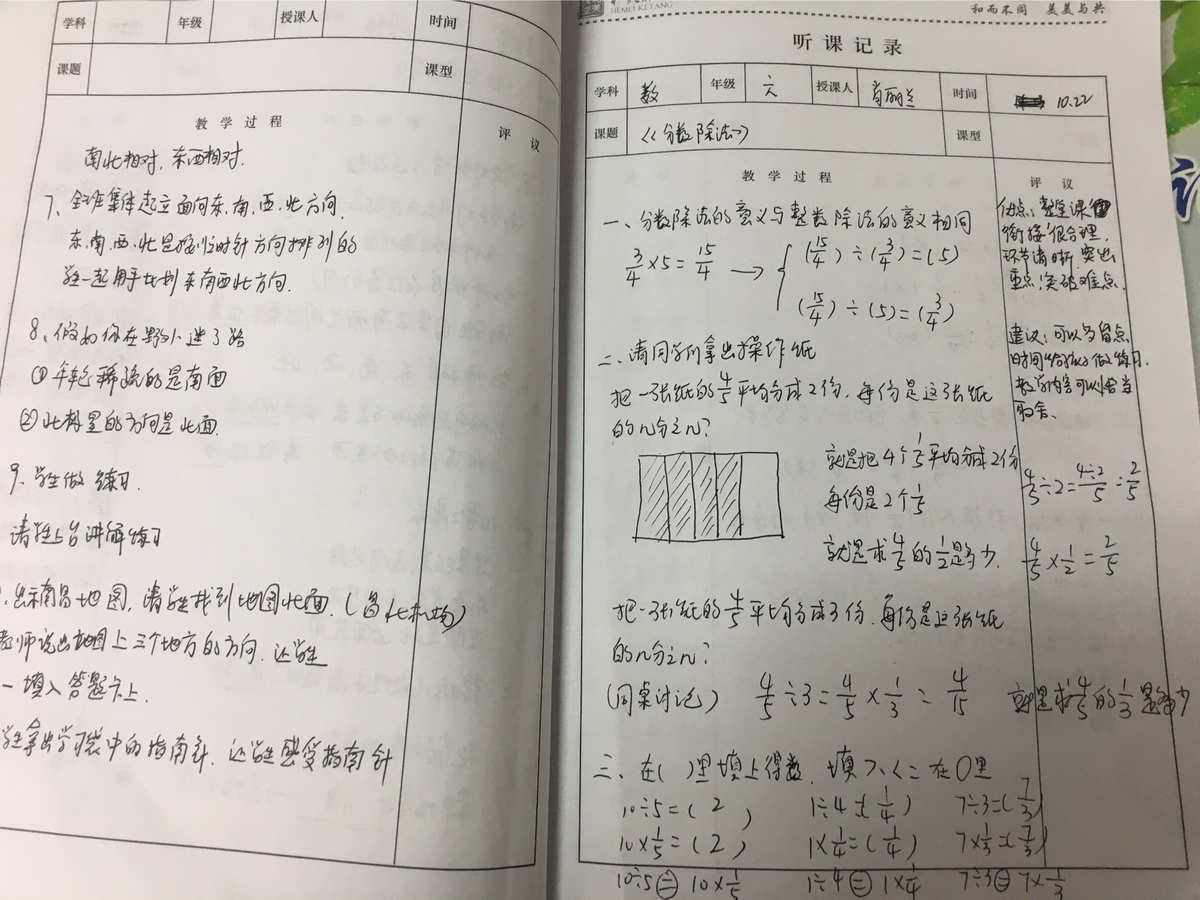 学科 年级 授课人 时间
课题 课型
教学过程 评议
南北相对，东西相对.
7、全班集体起立面向东、南、西、北方向.
东、南、西、北是按顺时针方向排列的
学生一起用手比划东南西北方向.
8、假如你在野外迷了路
①年轮稀疏的是南面
②北极星的方向是北面.
9、学生做练习.
请学生上台讲解练习
出示南昌地图，请学生找到地图北面.(昌北机场)
老师说出地图上三个地方的方向.让学生
一填入答题卡上.
学生拿出学习袋中的指南针.让学生感受指南针
HEMEI KETANG
和而不同 美美与共
听课记录
学科 数 年级 六 授课人 肖丽兰 时间 10.22
课题 《分数除法》 课型
教学过程 评议
一、分数除法的意义与整数除法的意义相同
3/4×5=15/4 → { (15/4)÷(3/4)=(5)
(15/4)÷(5)=(3/4)
二、请同学们拿出操作纸
把一张纸的4/5平均分成2份，每份是这张纸
的几分之几?
就是把4个1/5平均分成2份
每份是2个1/5
就是求4/5的1/2是多少.
把一张纸的4/5平均分成3份.每份是这张纸
的几分之几?
(同桌讨论) 4/5÷3=4/5×1/3=4/15 就是求4/5的1/3是多少
三、在( )里填上得数.填>、<、=在○里
10÷5=(2) 1÷4=(1/4) 7÷3=(7/3)
10×1/5=(2) 1×1/4=(1/4) 7×1/3=(7/3)
10÷5=10×1/5 1÷4=1×1/4 7÷3=7×1/3
优点：整堂课
衔接很合理，
环节清晰.突出
重点，突破难点.
建议：可以多留点
时间给孩子做练习.
教学内容可以适当
取舍.
4/5÷2=4÷2/5=2/5
4/5×1/2=2/5